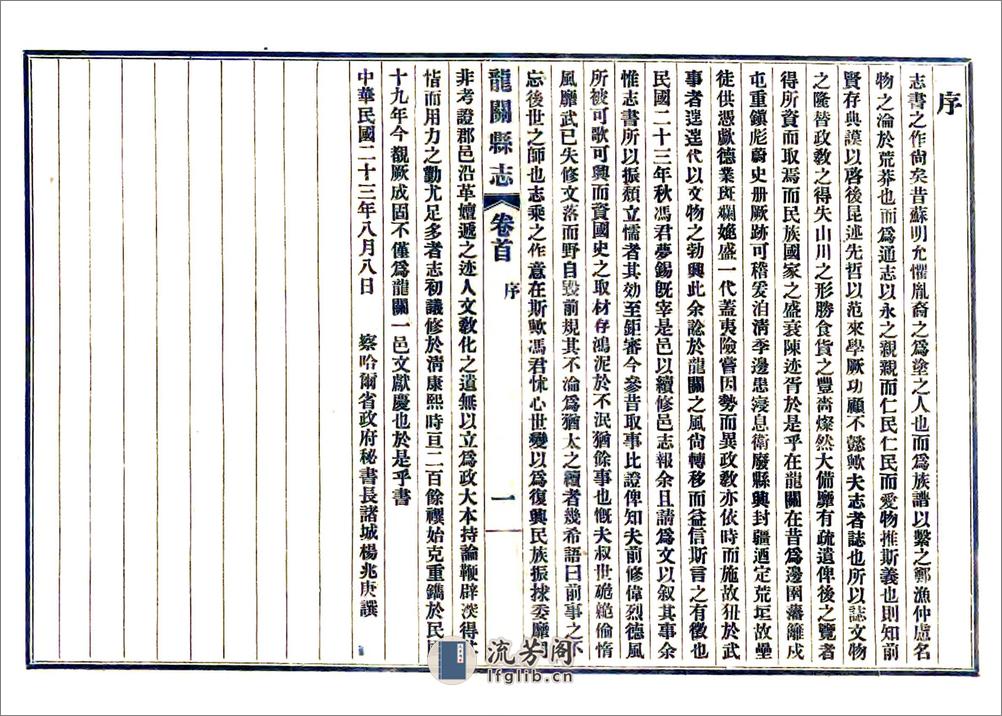 序
志書之作尙矣昔蘇明允懼胤裔之爲塗之人也而爲族譜以繫之鄭漁仲慮名
物之淪於荒莽也而爲通志以永之親親而仁民仁民而愛物推斯義也則知前
賢存典謨以啓後昆述先哲以范來學厥功顧不懿歟夫志者誌也所以誌文物
之隆替政敎之得失山川之形勝食貨之豐嗇燦然大備靡有疏遺俾後之覽者
得所資而取焉而民族國家之盛衰陳迹胥於是乎在龍關在昔爲邊圉藩籬戍
屯重鎮彪蔚史册厥跡可稽爰泊淸季邊患寖息衛廢縣興封疆迺定荒垣故壘
徒供憑歔德業斑斕媲盛一代蓋夷險嘗因勢而異政敎亦依時而施故狃於武
事者遑遑代以文物之勃興此余諗於龍關之風尙轉移而益信斯言之有徵也
民國二十三年秋馮君夢錫旣宰是邑以續修邑志報余且請爲文以叙其事余
惟志書所以振頹立懦者其效至鉅審今參昔取事比證俾知夫前修偉烈德風
所被可歌可興而資國史之取材存鴻泥於不泯猶餘事也慨夫叔世詭範偷惰
風靡武已失修文落而野自毀前規其不淪爲猶太之續者幾希語曰前事之不
忘後世之師也志乘之作意在斯歟馮君怵心世變以爲復興民族振捄委靡
龍關縣志 卷首 序 一
非考證郡邑沿革嬗遞之迹人文敎化之遺無以立爲政大本持論鞭辟深得
恉而用力之勤尤足多者志初議修於淸康熙時亘二百餘禩始克重鐫於民
十九年今覩厥成固不僅爲龍關一邑文獻慶也於是乎書
中華民國二十三年八月八日 察哈爾省政府秘書長諸城楊兆庚譔
流芳阁
lfglib.cn